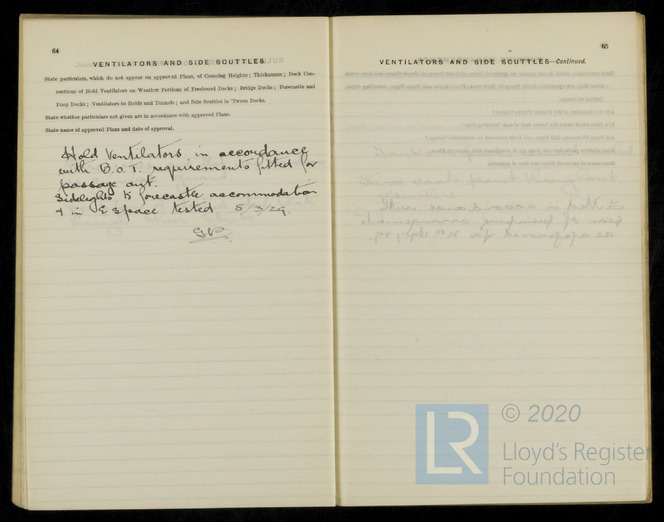 64
VENTILATORS AND SIDE SCUTTLES.
State particulars, which do not appear on approved Plans, of Coaming Heights; Thicknesses; Deck Con-
nections of Hold Ventilators on Weather Portions of Freeboard Decks; Bridge Decks; Forecastle and
Poop Decks; Ventilators to Holds and Tunnels; and Side Scuttles in 'Tween Decks.
State whether particulars not given are in accordance with approved Plans.
State name of approved Plans and date of approval.
Hold Ventilators in accordance
with B.O.T. requirements fitted for
passage out.
Sidelights to forecastle accommodation
+ in E space tested 5/3/29.
65
VENTILATORS AND SIDE SCUTTLES—Continued.
LR
© 2020
Lloyd's Register
Foundation